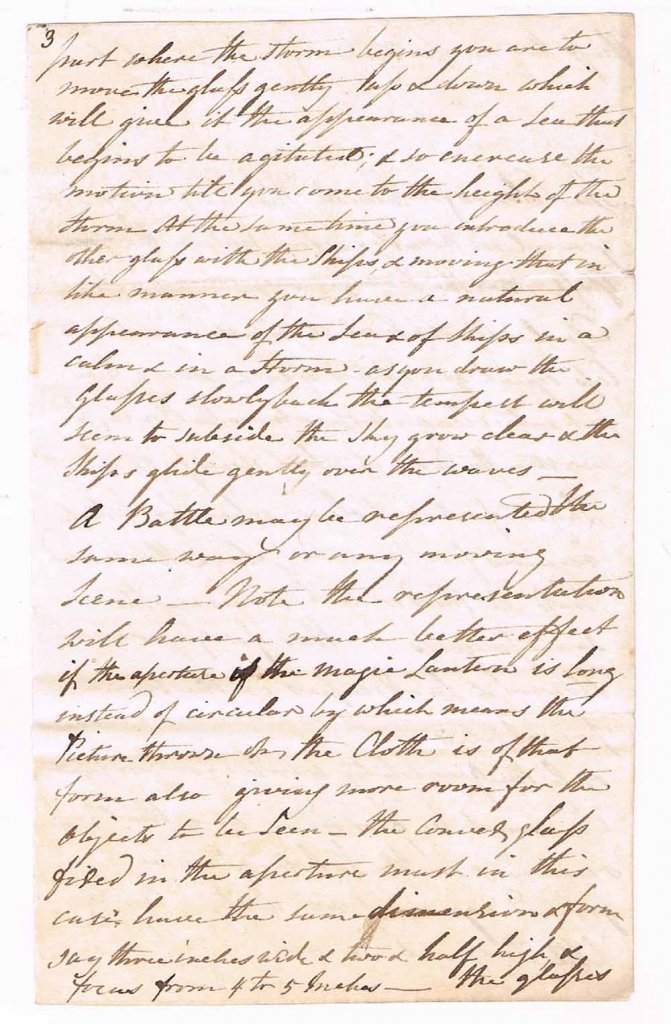 3
part where the storm begins you are to
move the glass gently up & down which
will give it the appearance of a Sea that
begins to be agitated; & so encrease the
motion till you come to the height of the
storm At the same time you introduce the
other glass with the Ships, & moving that in
like manner you have a natural
appearance of the Sea & of Ships in a
calm & in a storm - as you draw the
Glasses slowly back the tempest will
seem to subside the Sky grow clear & the
Ships glide gently over the waves —
A Battle may be represented the
same way or any moving
Scene — Note the representation
will have a much better effect
if the aperture of the Magic Lantern is long
instead of circular by which means the
Picture thrown on the Cloth is of that
form also giving more room for the
Objects to be Seen - the Convex glass
fixed in the aperture must in this
case have the same dimension & form
say three inches wide & two & half high &
focus from 4 to 5 Inches — the glasses